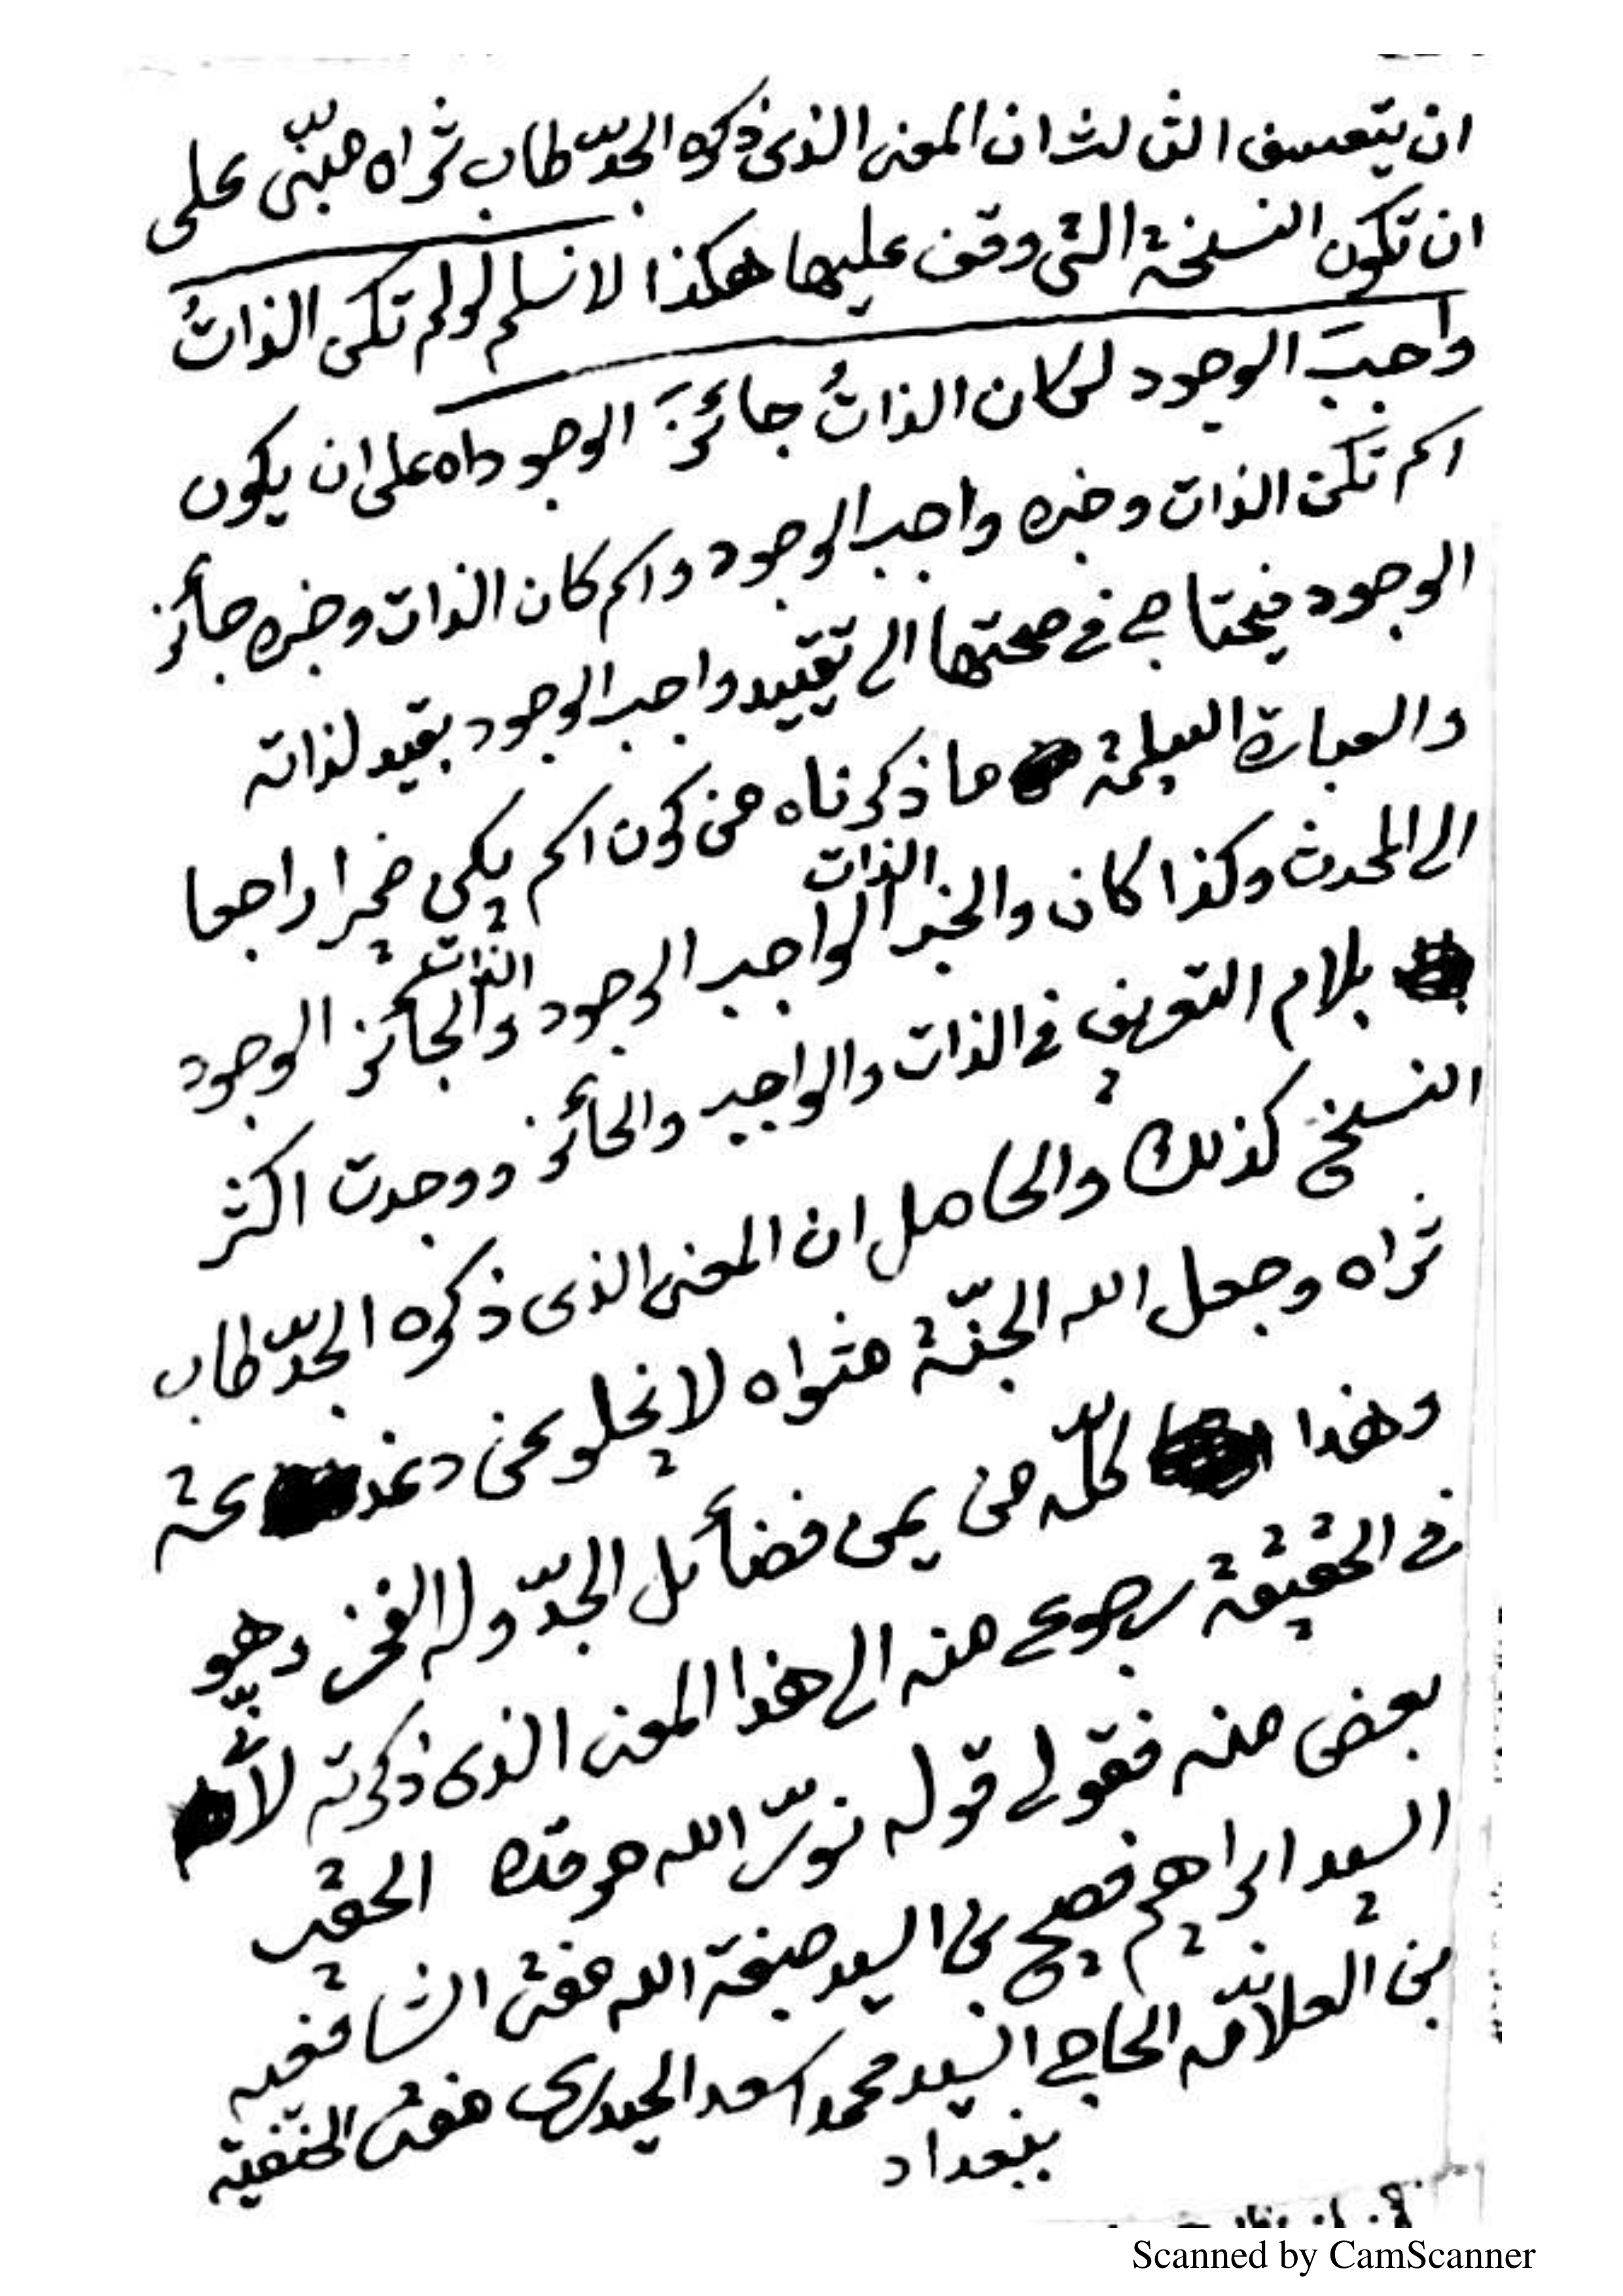 ان يتعسف الثالث ان المعنى الذى ذكره الجدّ طاب ثراه مبنّى على
ان تكون النسخة التى وقف عليها هكذا لا نسلم لو لم تكن الذاتُ
واجبَ الوجود لكان الذاتُ جائزَ الوجود اه على ان يكون
اسم تكن الذات وخبره واجب الوجود واسم كان الذات وخبره جائز
الوجود فيحتاج فى صحتها الى تقييد واجب الوجود بقيد لذاته
والعبارة السليمة ما ذكرناه من كون اسم يكن ضميرا راجعا
الى المحدث وكذا كان والخبر الذات الواجب الوجود والذات الجائز الوجود
بلام التعريف فى الذات والواجب والجائز ووجدت اكثر
النسخ كذلك والحاصل ان المعنى الذى ذكره الجدّ طاب
ثراه وجعل الله الجنّة مثواه لا يخلو عن دغدغة
وهذا كلّه من يمن فضائل الجدّ وله الفخر وهو
فى الحقيقة رجوع منه الى هذا المعنى الذى ذكرته لأنّى
بعض منه فقولى قوله نوّر الله مرقده الحقير
السيد ابراهيم فصيح بن السيد صبغة الله مفتى الشافعيه
بن العلامّه الحاج السيد محمد اسعد الحيدرى مفتى الحنفيّه
ببغداد
Scanned by CamScanner